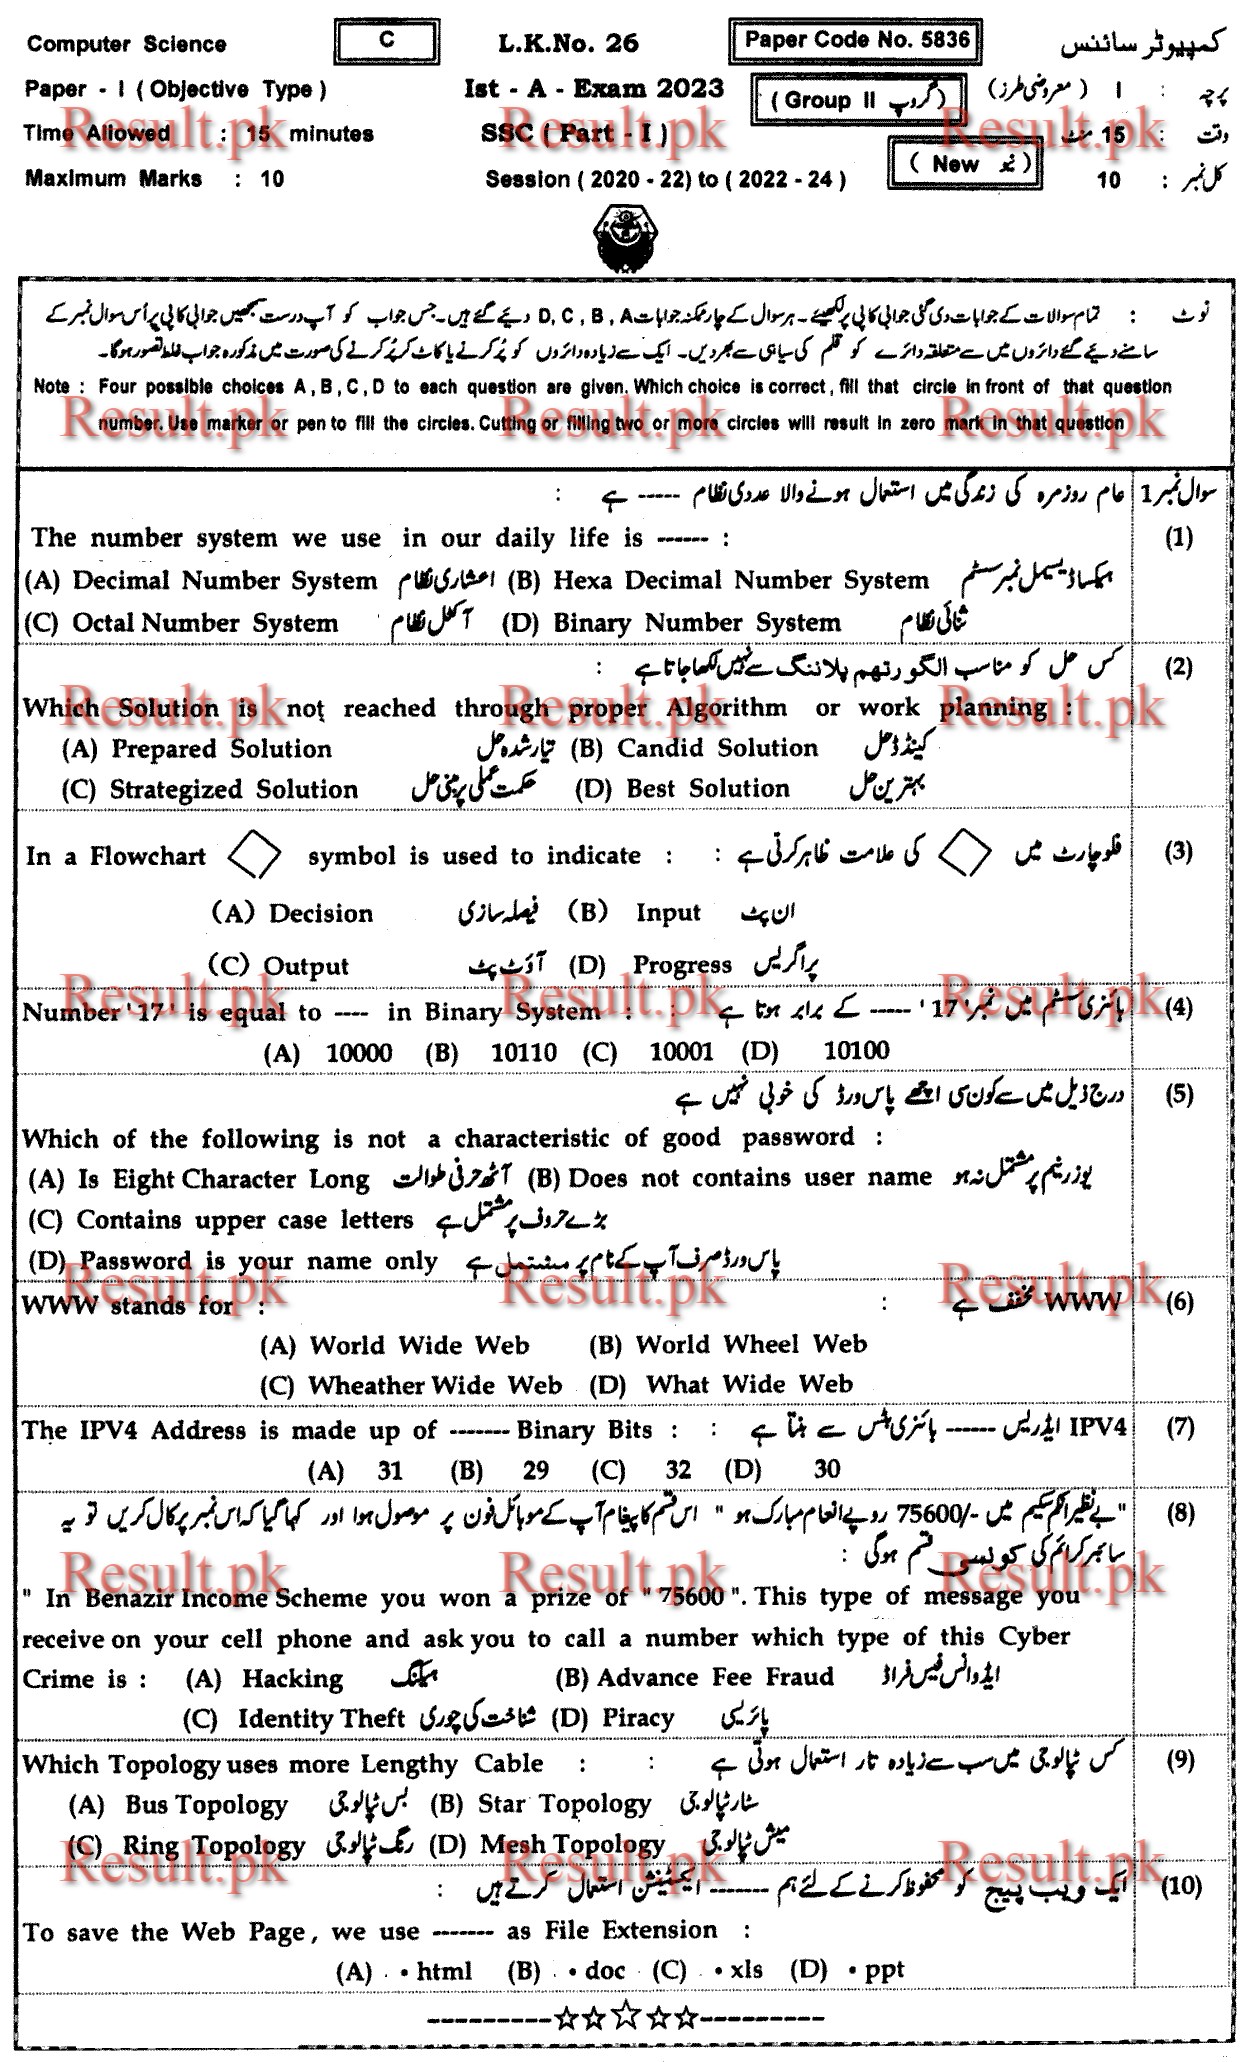 Computer Science C L.K.No. 26 Paper Code No. 5836 کمپیوٹر سائنس
Paper - I ( Objective Type ) Ist - A - Exam 2023 ( Group II گروپ ) پرچہ : I ( معروضی طرز )
Time Allowed : 15 minutes SSC ( Part - I ) وقت : 15 منٹ
Maximum Marks : 10 Session ( 2020 - 22) to ( 2022 - 24 ) ( New نیو ) کل نمبر : 10
نوٹ : تمام سوالات کے جوابات دی گئی جوابی کاپی پر لکھیئے۔ ہر سوال کے چار ممکنہ جوابات D, C, B, A دیئے گئے ہیں۔ جس جواب کو آپ درست سمجھیں جوابی کاپی پر اُس سوال نمبر کے
سامنے دیئے گئے دائروں میں سے متعلقہ دائرے کو قلم کی سیاہی سے بھر دیں۔ ایک سے زیادہ دائروں کو پُر کرنے یا کاٹ کر پُر کرنے کی صورت میں مذکورہ جواب غلط تصور ہوگا۔
Note : Four possible choices A , B , C , D to each question are given. Which choice is correct , fill that circle in front of that question
number. Use marker or pen to fill the circles. Cutting or filling two or more circles will result in zero mark in that question
سوال نمبر 1 عام روزمرہ کی زندگی میں استعمال ہونے والا عددی نظام ----- ہے :
The number system we use in our daily life is ------ : (1)
(A) Decimal Number System اعشاری نظام (B) Hexa Decimal Number System ہیکسا ڈیسیمل نمبر سسٹم
(C) Octal Number System آکٹل نظام (D) Binary Number System ثنائی نظام
(2) کس حل کو مناسب الگورتھم پلاننگ سے نہیں لکھا جاتا ہے :
Which Solution is not reached through proper Algorithm or work planning :
(A) Prepared Solution تیار شدہ حل (B) Candid Solution کینڈڈ حل
(C) Strategized Solution حکمت عملی پر مبنی حل (D) Best Solution بہترین حل
In a Flowchart symbol is used to indicate : فلو چارٹ میں کی علامت ظاہر کرتی ہے : (3)
(A) Decision فیصلہ سازی (B) Input ان پٹ
(C) Output آؤٹ پٹ (D) Progress پراگریس
Number '17' is equal to ---- in Binary System : بائنری سسٹم میں نمبر '17' ----- کے برابر ہوتا ہے : (4)
(A) 10000 (B) 10110 (C) 10001 (D) 10100
(5) درج ذیل میں سے کون سی اچھے پاس ورڈ کی خوبی نہیں ہے
Which of the following is not a characteristic of good password :
(A) Is Eight Character Long آٹھ حرفی طوالت (B) Does not contains user name یوزر نیم پر مشتمل نہ ہو
(C) Contains upper case letters بڑے حروف پر مشتمل ہے
(D) Password is your name only پاس ورڈ صرف آپ کے نام پر مشتمل ہے
WWW stands for : WWW مخفف ہے : (6)
(A) World Wide Web (B) World Wheel Web
(C) Wheather Wide Web (D) What Wide Web
The IPV4 Address is made up of ------- Binary Bits : IPV4 ایڈریس ------ بائنری بٹس سے بنتا ہے : (7)
(A) 31 (B) 29 (C) 32 (D) 30
(8) "بے نظیر انکم سکیم میں -/75600 روپے انعام مبارک ہو " اس قسم کا پیغام آپ کے موبائل فون پر موصول ہوا اور کہا گیا کہ اس نمبر پر کال کریں تو یہ
سائبر کرائم کی کونسی قسم ہوگی :
" In Benazir Income Scheme you won a prize of " 75600 ". This type of message you
receive on your cell phone and ask you to call a number which type of this Cyber
Crime is : (A) Hacking ہیکنگ (B) Advance Fee Fraud ایڈوانس فیس فراڈ
(C) Identity Theft شناخت کی چوری (D) Piracy پائریسی
Which Topology uses more Lengthy Cable : کس ٹپالوجی میں سب سے زیادہ تار استعمال ہوتی ہے : (9)
(A) Bus Topology بس ٹپالوجی (B) Star Topology سٹار ٹپالوجی
(C) Ring Topology رنگ ٹپالوجی (D) Mesh Topology میش ٹپالوجی
(10) ایک ویب پیج کو محفوظ کرنے کے لئے ہم ------- ایکسٹینشن استعمال کرتے ہیں :
To save the Web Page , we use ------- as File Extension :
(A) . html (B) . doc (C) . xls (D) . ppt